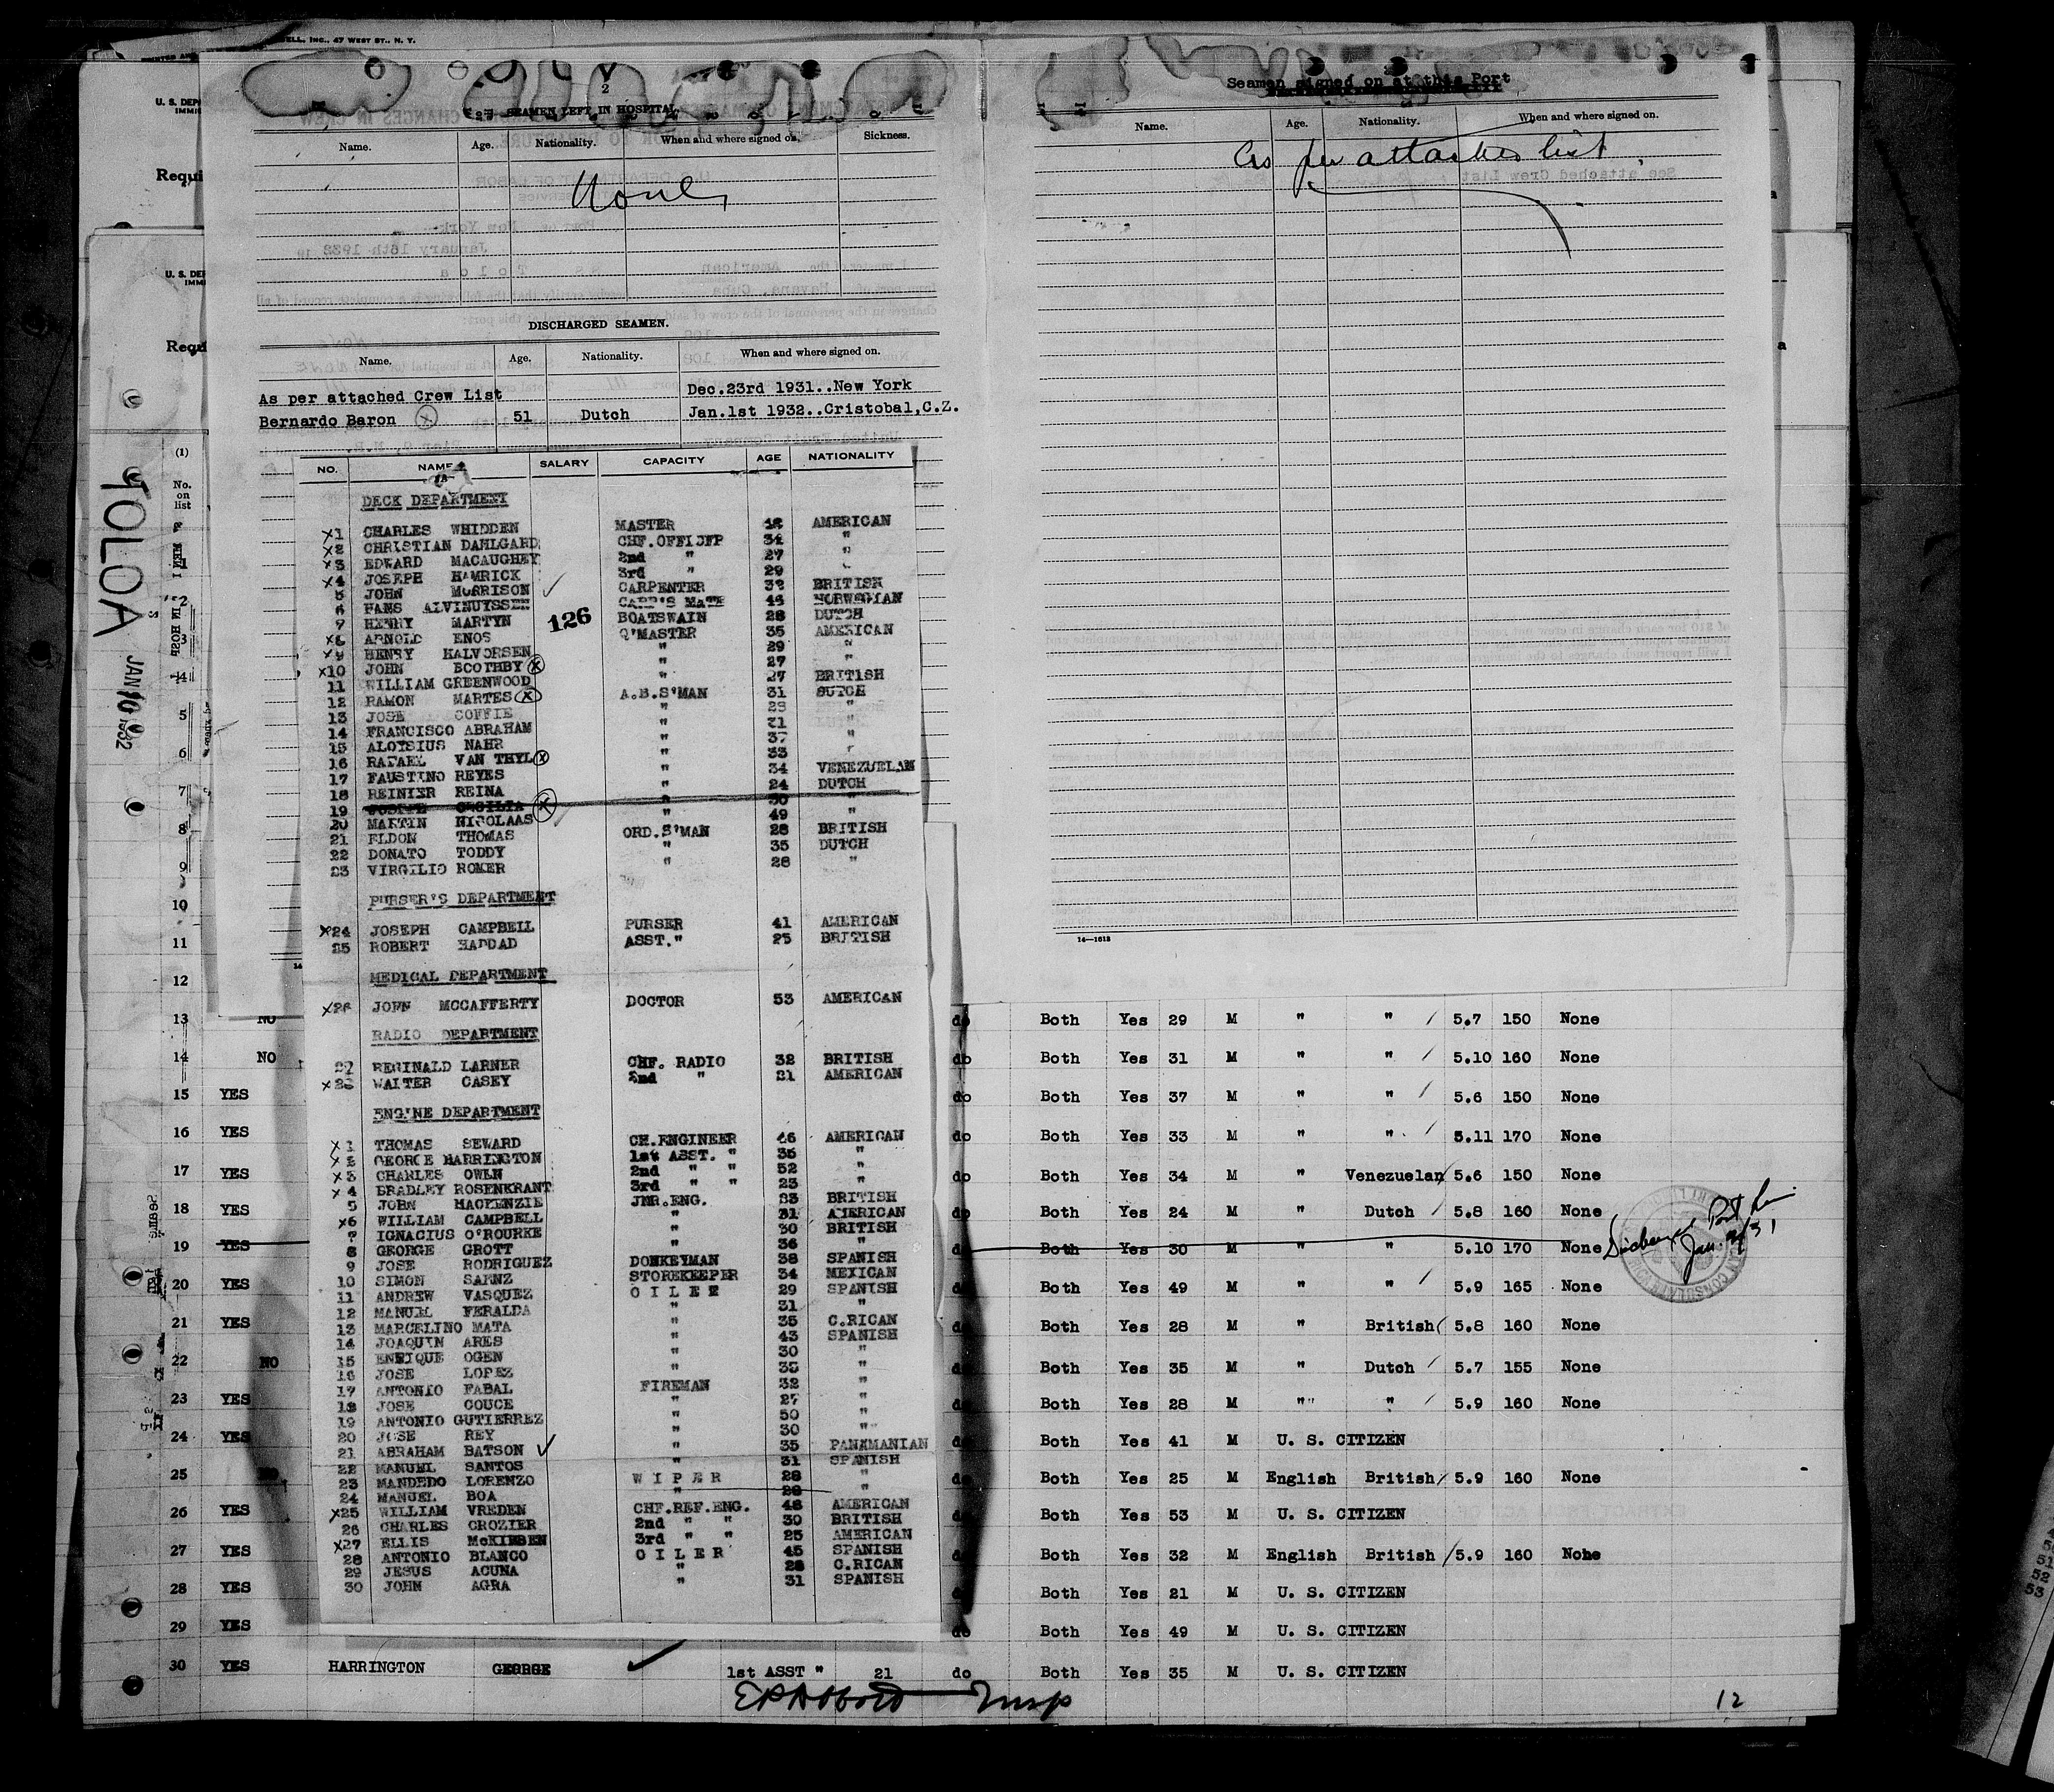 ELL, INC., 47 WEST ST., N. Y.
U. S. DEP
IMMI
Requi
U. S. DEP
IMMI
Requ
TOLOA
JAN 1932
(1)
No.
on
list
2
SEAMEN LEFT IN HOSPITAL
Name. Age. Nationality. When and where signed on. Sickness.
None
DISCHARGED SEAMEN.
Name. Age. Nationality. When and where signed on.
As per attached Crew List Dec.23rd 1931..New York
Bernardo Baron 51 Dutch Jan.1st 1932..Cristobal,C.Z.
Seamen signed on at this Port
Name. Age. Nationality. When and where signed on.
As per attached list
14—1613
NO. NAME SALARY CAPACITY AGE NATIONALITY
DECK DEPARTMENT
x1 CHARLES WHIDDEN MASTER AMERICAN
x2 CHRISTIAN DAHLGARD CHF. 34 "
x3 EDWARD MACAUGHEY 2nd " 27 "
x4 JOSEPH HAMRICK 3rd " 29 "
5 JOHN MORRISON CARPENTER BRITISH
6 HANS ALVINUYSSEN CARP'S MATE NORWEGIAN
7 HENRY MARTYN 126 BOATSWAIN 28 DUTCH
x8 ARNOLD ENOS Q'MASTER 35 AMERICAN
x9 HENRY HALVORSEN " 29 "
x10 JOHN BOOTHBY x " 27 "
11 WILLIAM GREENWOOD " 27 BRITISH
12 RAMON MARTES x A.B.S'MAN 31 DUTCH
13 JOSE COFFIE " 29 "
14 FRANCISCO ABRAHAM " 31 "
15 ALOYSIUS NAHR " 37 "
16 RAFAEL VAN THYL x " 33 "
17 FAUSTINO REYES " 34 VENEZUELAN
18 REINIER REINA " 24 DUTCH
19 CECILIA x " 30 "
20 MARTIN NICOLAAS " 49 "
21 ELDON THOMAS ORD.S'MAN 28 BRITISH
22 DONATO TODDY " 35 DUTCH
23 VIRGILIO ROMER " 28 "
PURSER'S DEPARTMENT
x24 JOSEPH CAMPBELL PURSER 41 AMERICAN
25 ROBERT HADDAD ASST." 25 BRITISH
MEDICAL DEPARTMENT
x26 JOHN MCCAFFERTY DOCTOR 53 AMERICAN
RADIO DEPARTMENT
27 REGINALD LARNER CHF. RADIO 32 BRITISH
x28 WALTER CASEY 2nd " 21 AMERICAN
ENGINE DEPARTMENT
x1 THOMAS SEWARD CH.ENGINEER 46 AMERICAN
x2 GEORGE HARRINGTON 1st ASST. " 35 "
x3 CHARLES OWEN 2nd " " 52 "
x4 BRADLEY ROSENKRANT 3rd " " 23 "
5 JOHN MACKENZIE JNR.ENG. BRITISH
x6 WILLIAM CAMPBELL " 31 AMERICAN
7 IGNACIUS O'ROURKE " 30 BRITISH
8 GEORGE GROTT " 36 "
9 JOSE RODRIGUEZ DONKEYMAN 38 SPANISH
10 SIMON SAENZ STOREKEEPER 34 MEXICAN
11 ANDREW VASQUEZ O I L E R 29 SPANISH
12 MANUEL FERALDA " 31 "
13 MARCELINO MATA " 35 C.RICAN
14 JOAQUIN ARES " 43 SPANISH
15 ENRIQUE OGEN " 30 "
16 JOSE LOPEZ " "
17 ANTONIO FABAL FIREMAN 32 "
18 JOSE COUCE " 27 "
19 ANTONIO GUTIERREZ " 50 "
20 JOSE REY " 30 "
21 ABRAHAM BATSON " 35 PANAMANIAN
22 MANUEL SANTOS " 31 SPANISH
23 MANDEDO LORENZO W I P E R 28 "
24 MANUEL BOA " "
x25 WILLIAM VREDEN CHF.REF.ENG. 48 AMERICAN
26 CHARLES CROZIER 2nd " " 30 BRITISH
x27 ELLIS McKIBBEN 3rd " " 25 AMERICAN
28 ANTONIO BLANCO O I L E R 45 SPANISH
29 JESUS ACUNA " 28 C.RICAN
30 JOHN AGRA " 31 SPANISH
2
3
4
5
6
7
8
9
10
11
12
13 NO do Both Yes 29 M " " 5.7 150 None
14 NO do Both Yes 31 M " " 5.10 160 None
15 YES do Both Yes 37 M " " 5.6 150 None
16 YES do Both Yes 33 M " " 5.11 170 None
17 YES do Both Yes 34 M " Venezuelan 5.6 150 None
18 YES do Both Yes 24 M " Dutch 5.8 160 None
19 YES Both Yes 30 M " " 5.10 170 None
20 YES Both Yes 49 M " " 5.9 165 None
21 YES Both Yes 28 M " British 5.8 160 None
22 NO Both Yes 35 M " Dutch 5.7 155 None
23 YES Both Yes 28 M " " 5.9 160 None
24 YES Both Yes 41 M U. S. CITIZEN
25 NO Both Yes 25 M English British 5.9 160 None
26 YES Both Yes 53 M U. S. CITIZEN
27 YES Both Yes 32 M English British 5.9 160 None
28 YES Both Yes 21 M U. S. CITIZEN
29 YES do Both Yes 49 M U. S. CITIZEN
30 YES HARRINGTON GEORGE 1st ASST " 21 do Both Yes 35 M U. S. CITIZEN
12